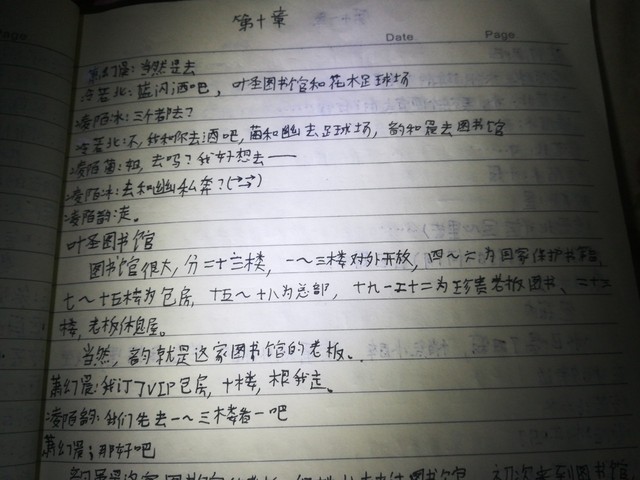 Page
第十章
Date Page
萧幻漠:当然是去
冷若北:蓝闪酒吧,叶圣图书馆和花木足球场
凌陌冰:三个都去?
冷若北:不,我和你去酒吧,茵和幽去足球场,韵和漠去图书馆
凌陌茵:姐,去吗?我好想去——
凌陌冰:去和幽私奔?(→→)
凌陌韵:走。
叶圣图书馆
图书馆很大,分二十三楼,一~三楼对外开放,四~六为国家保护书
七~十五楼为包房,十五~十八为总部,十九-二十二为珍贵老板图书、二十三
楼,老板休息屋。
当然,韵就是这家图书馆的老板。
萧幻漠:我订了VIP包房,十楼,根我走。
凌陌韵:我们先去一~三楼看一吧
萧幻漠:那好吧